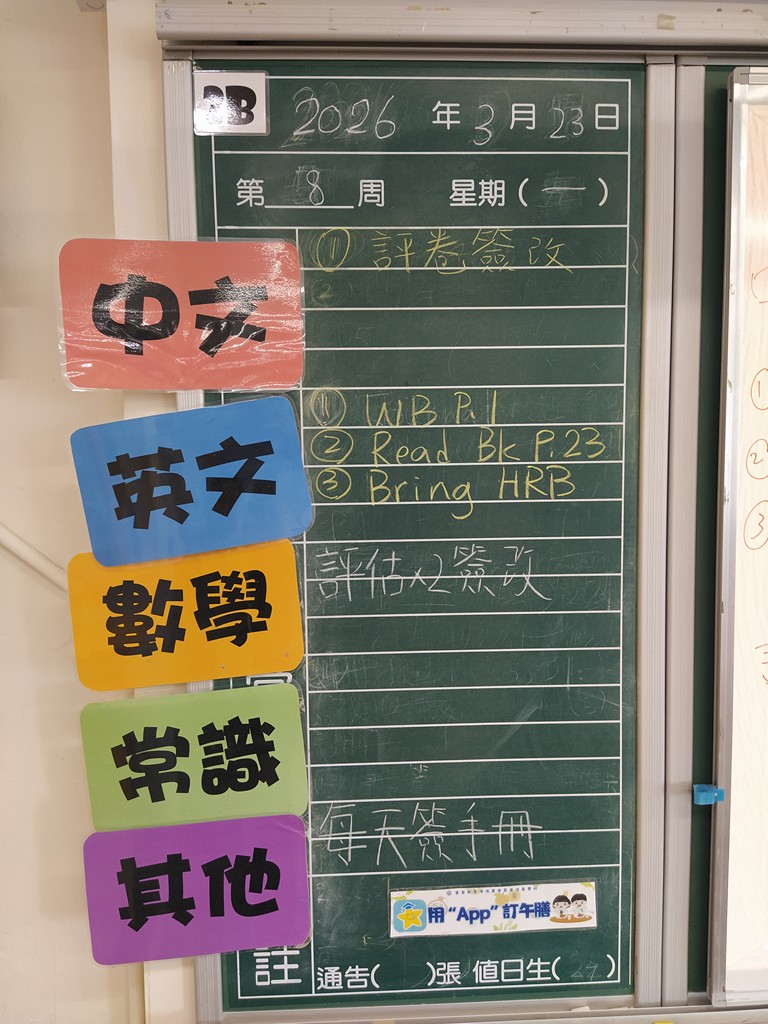 2026 年 3 月 23 日
第 8 周 星期 ( 一 )
中文
① 評卷簽改
英文
① WB P.1
② Read Bk P.23
③ Bring HRB
數學
評估×2簽改
常識
其他
每天簽手冊
用 "App" 訂午膳
註
通告( )張 值日生( )
1
2
3